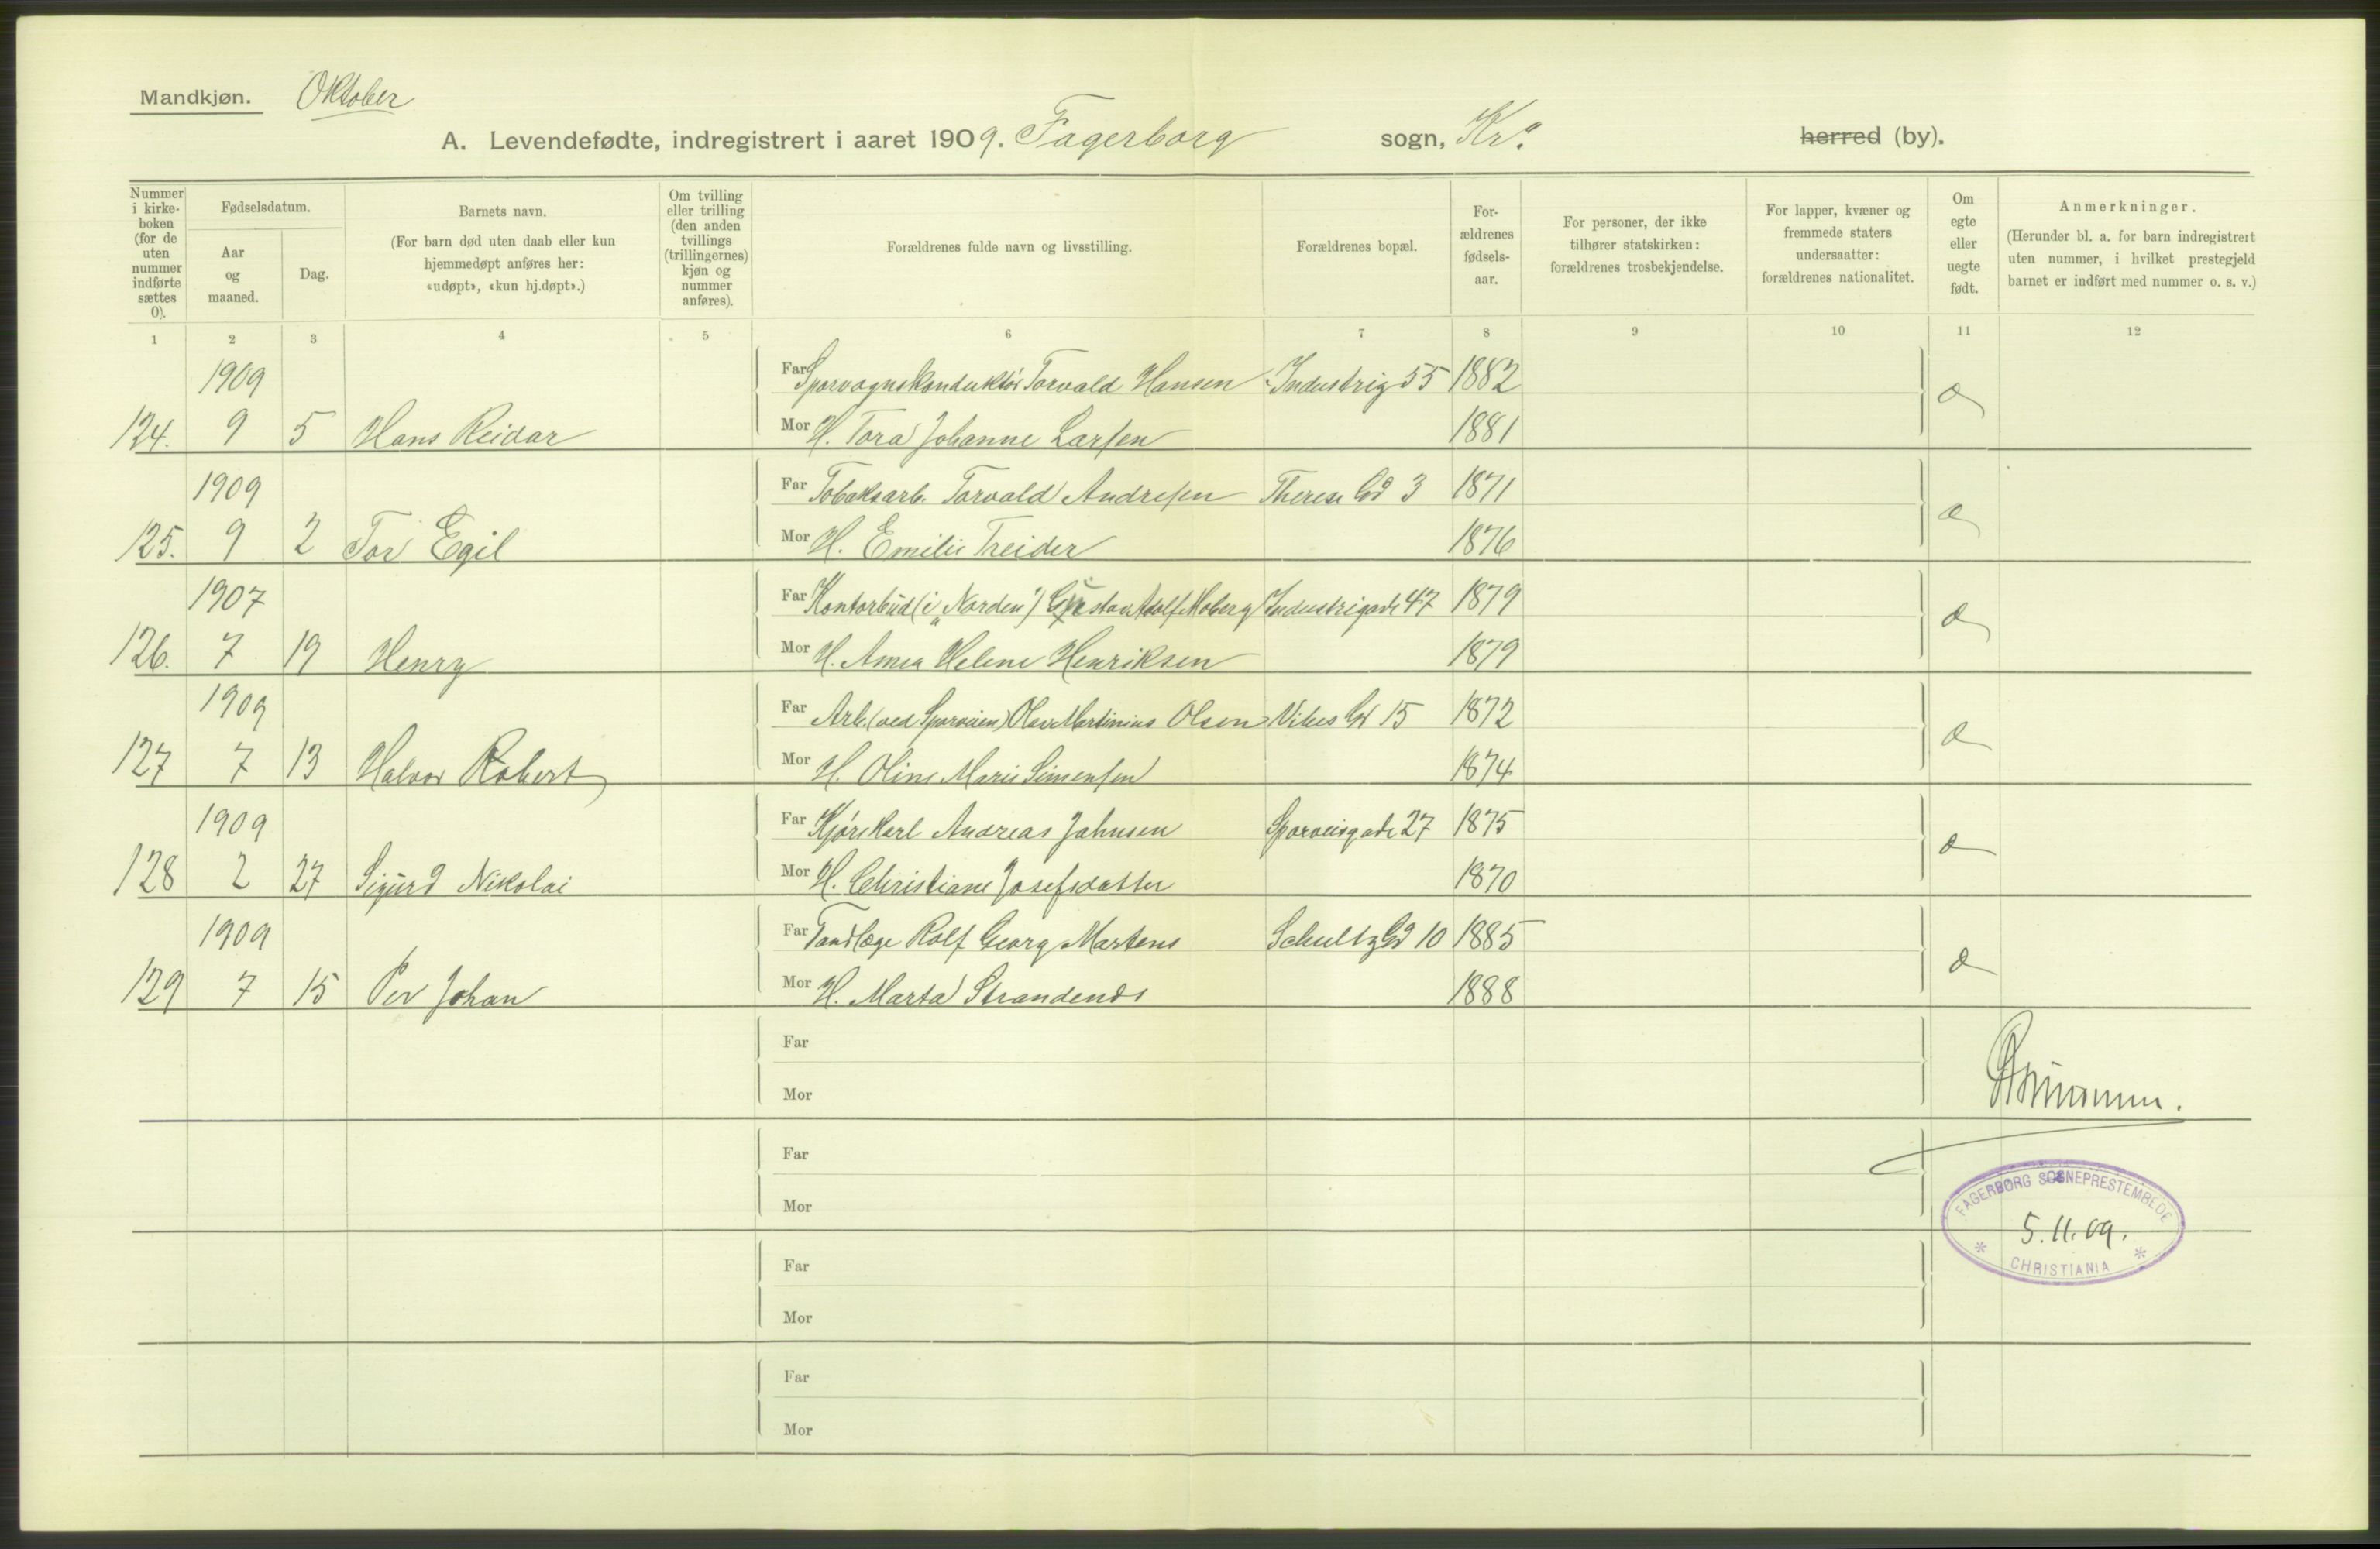 Mandkjøn. Oktober
A. Levendefødte, indregistrert i aaret 1909. Fagerborg sogn, Kra. herred (by).
Nummer i kirke-boken (for de uten nummer indførte sættes 0).
Fødselsdatum.
Aar og maaned.
Dag.
Barnets navn.
(For barn død uten daab eller kun hjemmedøpt anføres her: «udøpt», «kun hj.døpt».)
Om tvilling eller trilling (den anden tvillings (trillingernes) kjøn og nummer anføres).
Forældrenes fulde navn og livsstilling.
Forældrenes bopæl.
For-ældrenes fødsels-aar.
For personer, der ikke tilhører statskirken: forældrenes trosbekjendelse.
For lapper, kvæner og fremmede staters undersaatter: forældrenes nationalitet.
Om egte eller uegte født.
Anmerkninger.
(Herunder bl. a. for barn indregistrert uten nummer, i hvilket prestegjeld barnet er indført med nummer o. s. v.)
1 2 3 4 5 6 7 8 9 10 11 12
1909 Far Sporvognskonduktør Torvald Hansen Industrig 55 1882
124. 9 5 Hans Reidar Mor H. Tora Johanne Larsen 1881
1909 Far Tobaksarb. Torvald Andresen Therese Gd 3 1871
125. 9 2 Tor Egil Mor H. Emilie Treider 1876
1907 Far Kontorbud (i „Norden") Gustav Adolf Moberg Industrigade 47 1879
126. 7 19 Henry Mor H. Anna Helene Henriksen 1879
1909 Far Arb. (ved Sporveien) Olav Martinius Olsen Vibes Gd 15 1872
127 7 13 Halvor Robert Mor H. Oline Marie Simensen 1874
1909 Far Kjørekarl Andreas Jahnsen Sporveisgade 27 1875
128 2 27 Sigurd Nikolai Mor H. Christiane Josefsdatter 1870
1909 Far Tandlæge Rolf Georg Martens Schultz Gd 10 1885
129 7 15 Per Johan Mor H. Marta Strandends 1888
Far
Mor
Far
Mor
FAGERBORG SOGNEPRESTEMBEDE
5.11.09.
CHRISTIANIA
Far
Mor
Far
Mor